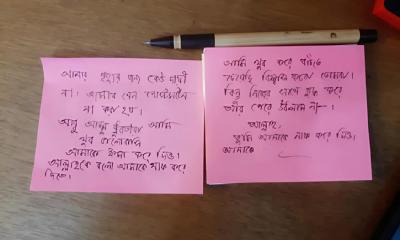 আমার মৃত্যুর জন্য কেউ দায়ী
না। আমার যেন পোস্টমর্টেম
না করা হয়।
আব্বু আম্মু আমি
খুব ভালোবাসি
আমাকে ক্ষমা করে দিও।
আল্লাহকে বলো আমাকে মাফ করে
দিতে।
আমি খুব করে বাঁচতে
চেয়েছি বিশ্বাস করো তোমরা।
কিন্তু নিজের সাথে যুদ্ধ করে
আর পেরে উঠলাম না।
আল্লাহ
তুমি আমাকে মাফ করে দিও।
আমাকে